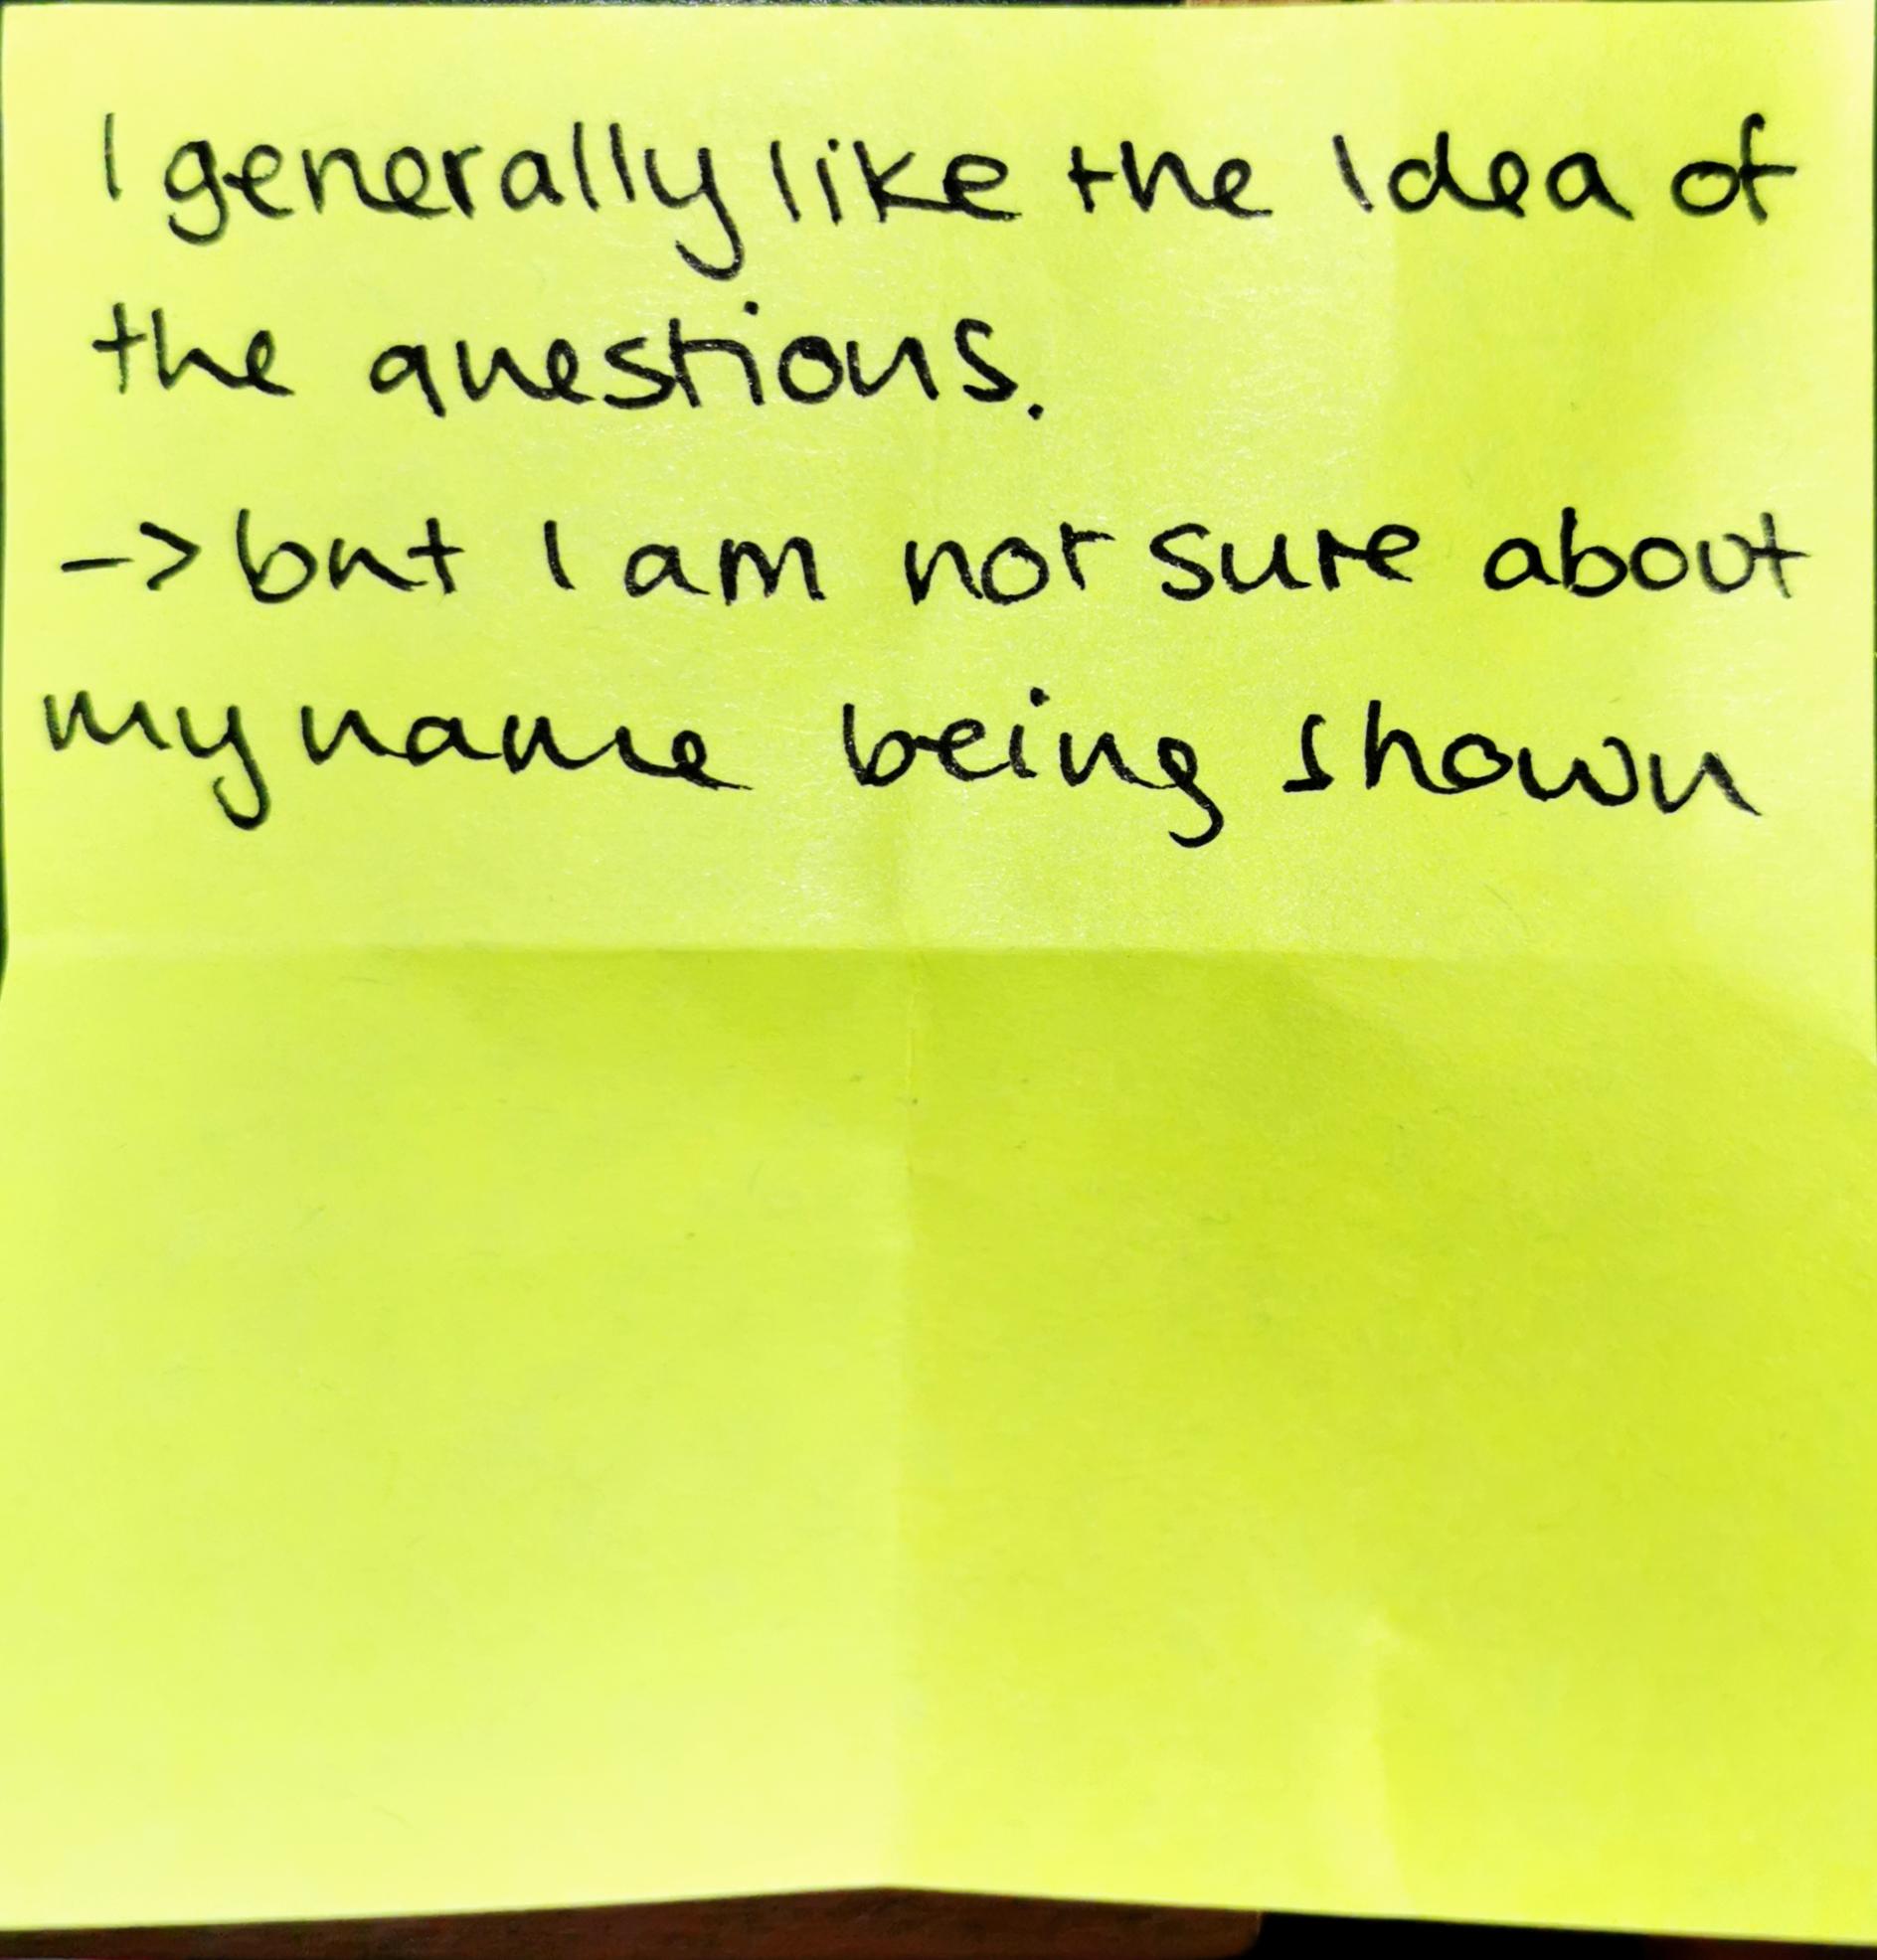 I generally like the Idea of
the questions.
-> but I am not sure about
my name being shown